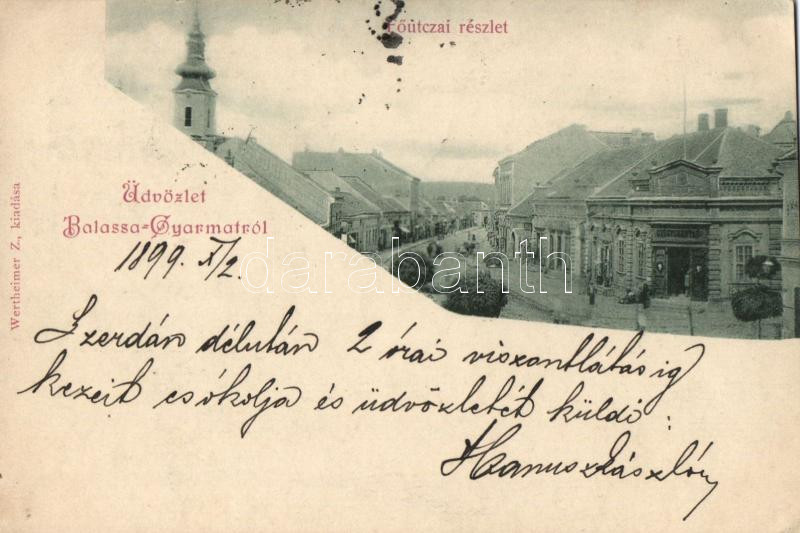 Főútczai részlet
Üdvözlet
Balassa-Gyarmatról
Wertheimer Z., kiadása
1899. X/2.
darabanth
Szerdán délután 2 órai viszontlátásig
kezeit csókolja és üdvözletét küldi:
Hanusz László